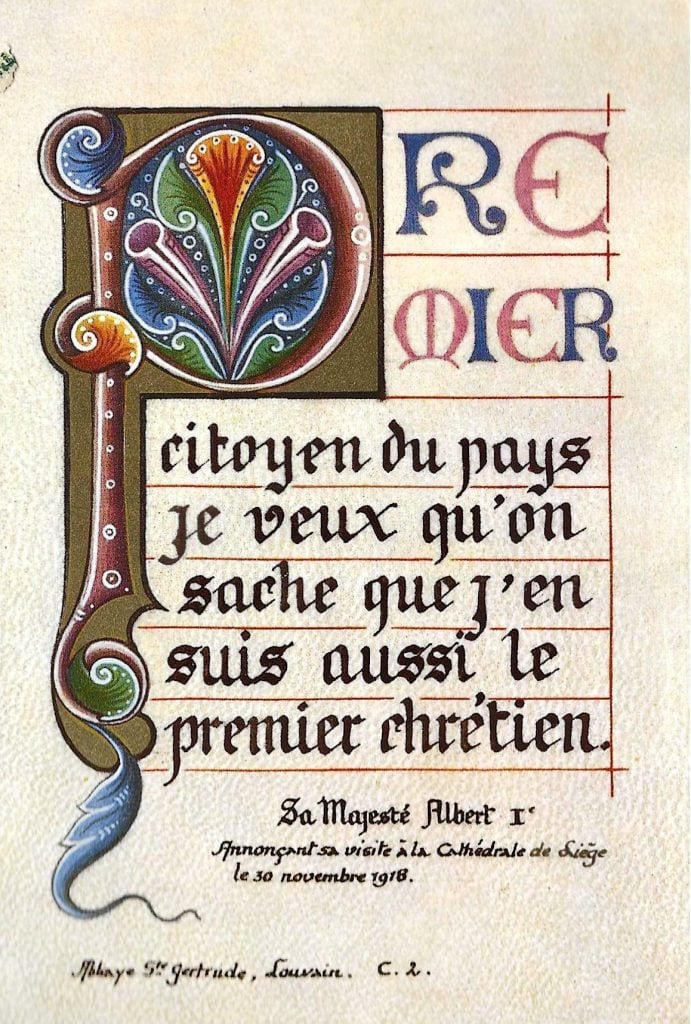 PRE
MIER
citoyen du pays
je veux qu'on
sache que j'en
suis aussï le
premier chrétien.
Sa Majesté Albert Iᵉʳ
Annonçant sa visite à la Cathédrale de Liège
le 30 novembre 1918.
Abbaye Sᵗᵉ Gertrude, Louvain. C. 2.